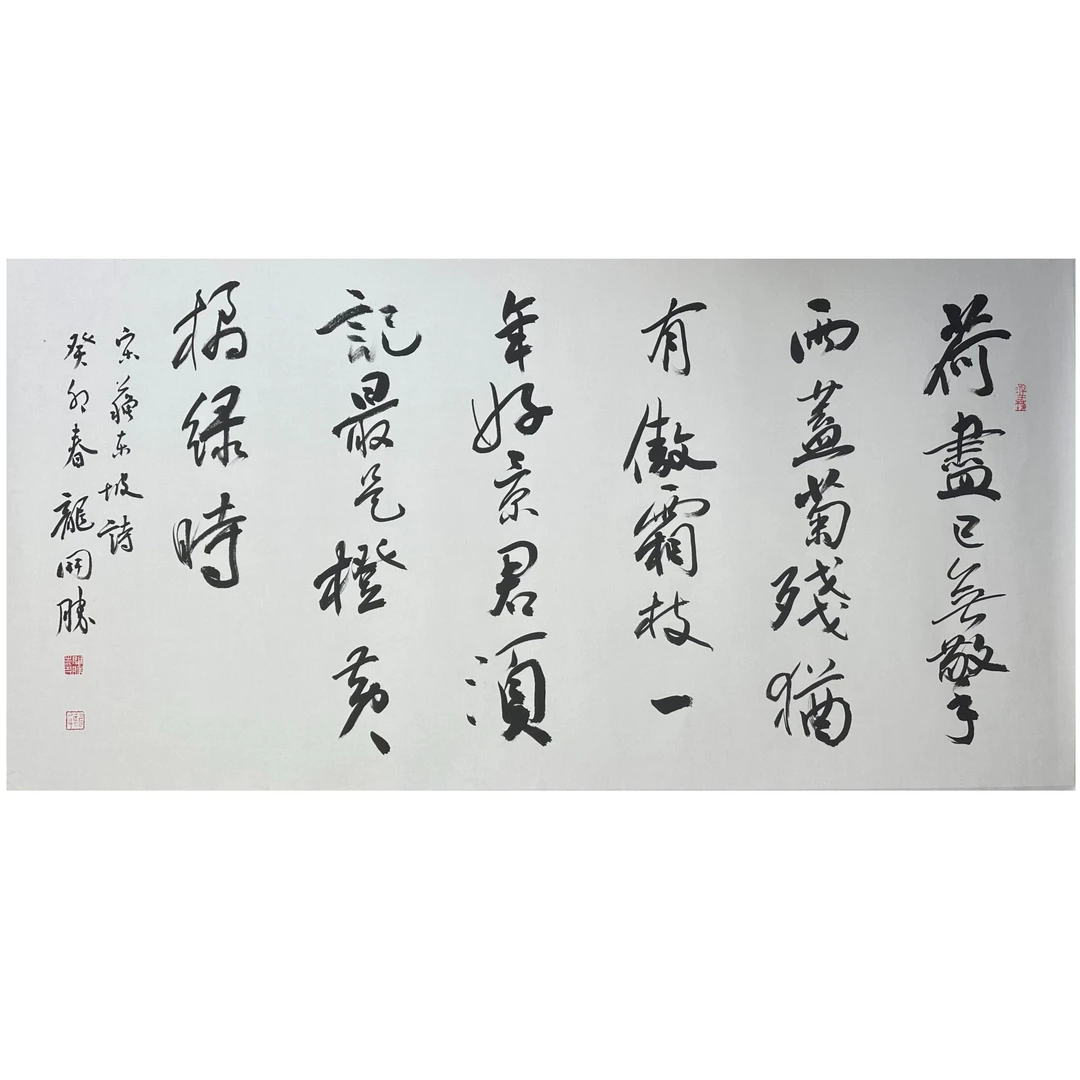 荷盡已無擎
雨蓋菊殘猶
有傲霜枝一
年好景君須
記最是橙黄
橘緑時
宋蘇东坡詩
癸卯春龍開勝